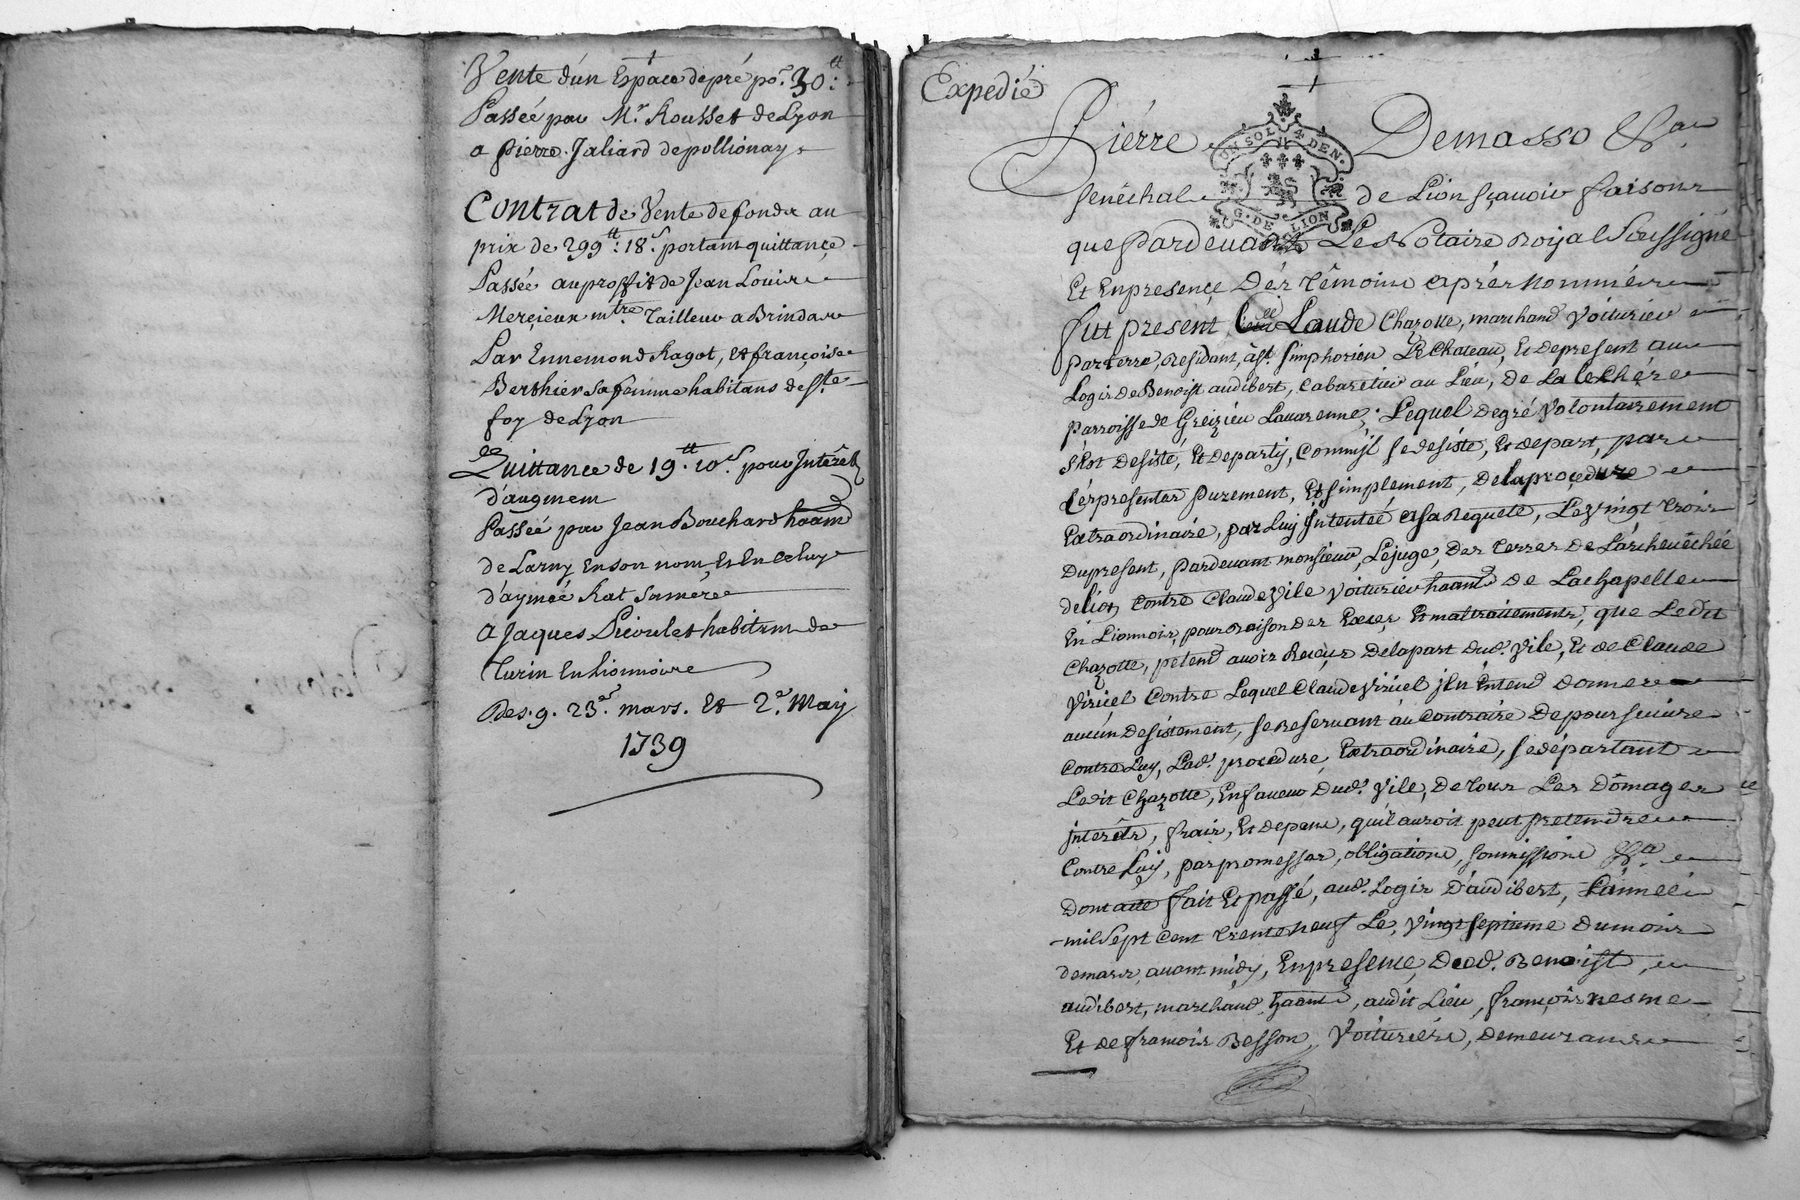 Vente d'un Espace de pré pr. 30tt:
Passée par Mr. Rousset de Lyon
a pierre Jaliard de pollionay
Contrat de Vente de fonds au
prix de 299tt: 18s portant quittance
Passée au proffit de Jean Louis
Mercieux mtre. Tailleur a Brindas
Par Ennemond Ragot, et françoise
Berthier sa femme habitans de Ste
foy de Lyon
Quittance de 19tt. 10s. pour Intérêts
d'augment
Passée par Jean Bouchard haant
de Larny en son nom et en celuy
d'aymée Rat sa mere
a Jaques habitant de
Turin en lionnois
Des. 9. 23e. mars. et 2e. May
1739
Expedié
UN SOL. 4 DEN.
G. DE LION
Pierre Demasso &a
senéchal de Lion sçavoir faisons
que pardevant Le Notaire Royal Soussigné
Et En presence Des témoins aprés Nommés
fut present Claude Chazotte, marchand Voiturier
par terre, Residant, a St. Simphorien Le Chateau, Et de present au
Logis de Benoist audibert, Cabaretier au Lieu, De La leChére
parroisse de Greizieu Lavarenne; Lequel de gré Volontairement
s'est desisté, Et departy, Comm'jl se desiste, Et depart, par
Ces presentes purement, Et simplement, De la procedure
Extraordinaire, par Luy Intentée a sa Requete, Le vingt trois
Du present, pardevant monsieur, Le juge, Des terres de L'archevêchée
de lion Contre Claude Vile Voiturier haant de La chapelle
En Lionnois, pour Raison des Exces, Et maltraitements, que Ledit
Chazotte, petend avoir Reçus De la part dud. Vile, Et de Claude
Viriel Contre Lequel Claude Viriel jl n'Entend donner
aucun desistement, se Reservant au Contraire De poursuivre
Contre Luy, Lad. procedure Extraordinaire, se départant
Ledit Chazotte, En faveur Dud. Vile, De tous Les Dômages
jnterêts, frais, Et depens, qu'il auroit peut pretendre
Contre Luy, par promesses, obligations, soumissions &a
Dont acte fait Et passé, aud. Logis D'audibert, L'année
mil sept Cent trente neuf Le, Vingt septieme Du mois
de mars avant midy, En presence Dud. Benoist,
audibert, marchand haant, audit Lieu, françois nesme
Et de françois Besson, Voituriers, demeurans